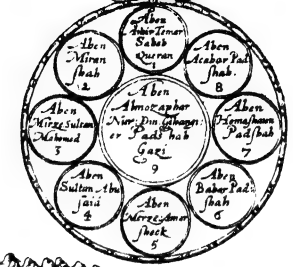 Aben
Amir Temar
Saheb
Queran
1
Aben
Miran
shah
2
Aben
Mirze Sultan
Mahomed
3
Aben
Sulton Abu
saiid
4
Aben
Merze Amer
sheek
5
Aben
Babar Pad:
shah
6
Aben
Homashaun
Padshah
7
Aben
Acabar Pad
shah.
8
Aben
Abmozaphar
Din
er Padshah
Gazi
9